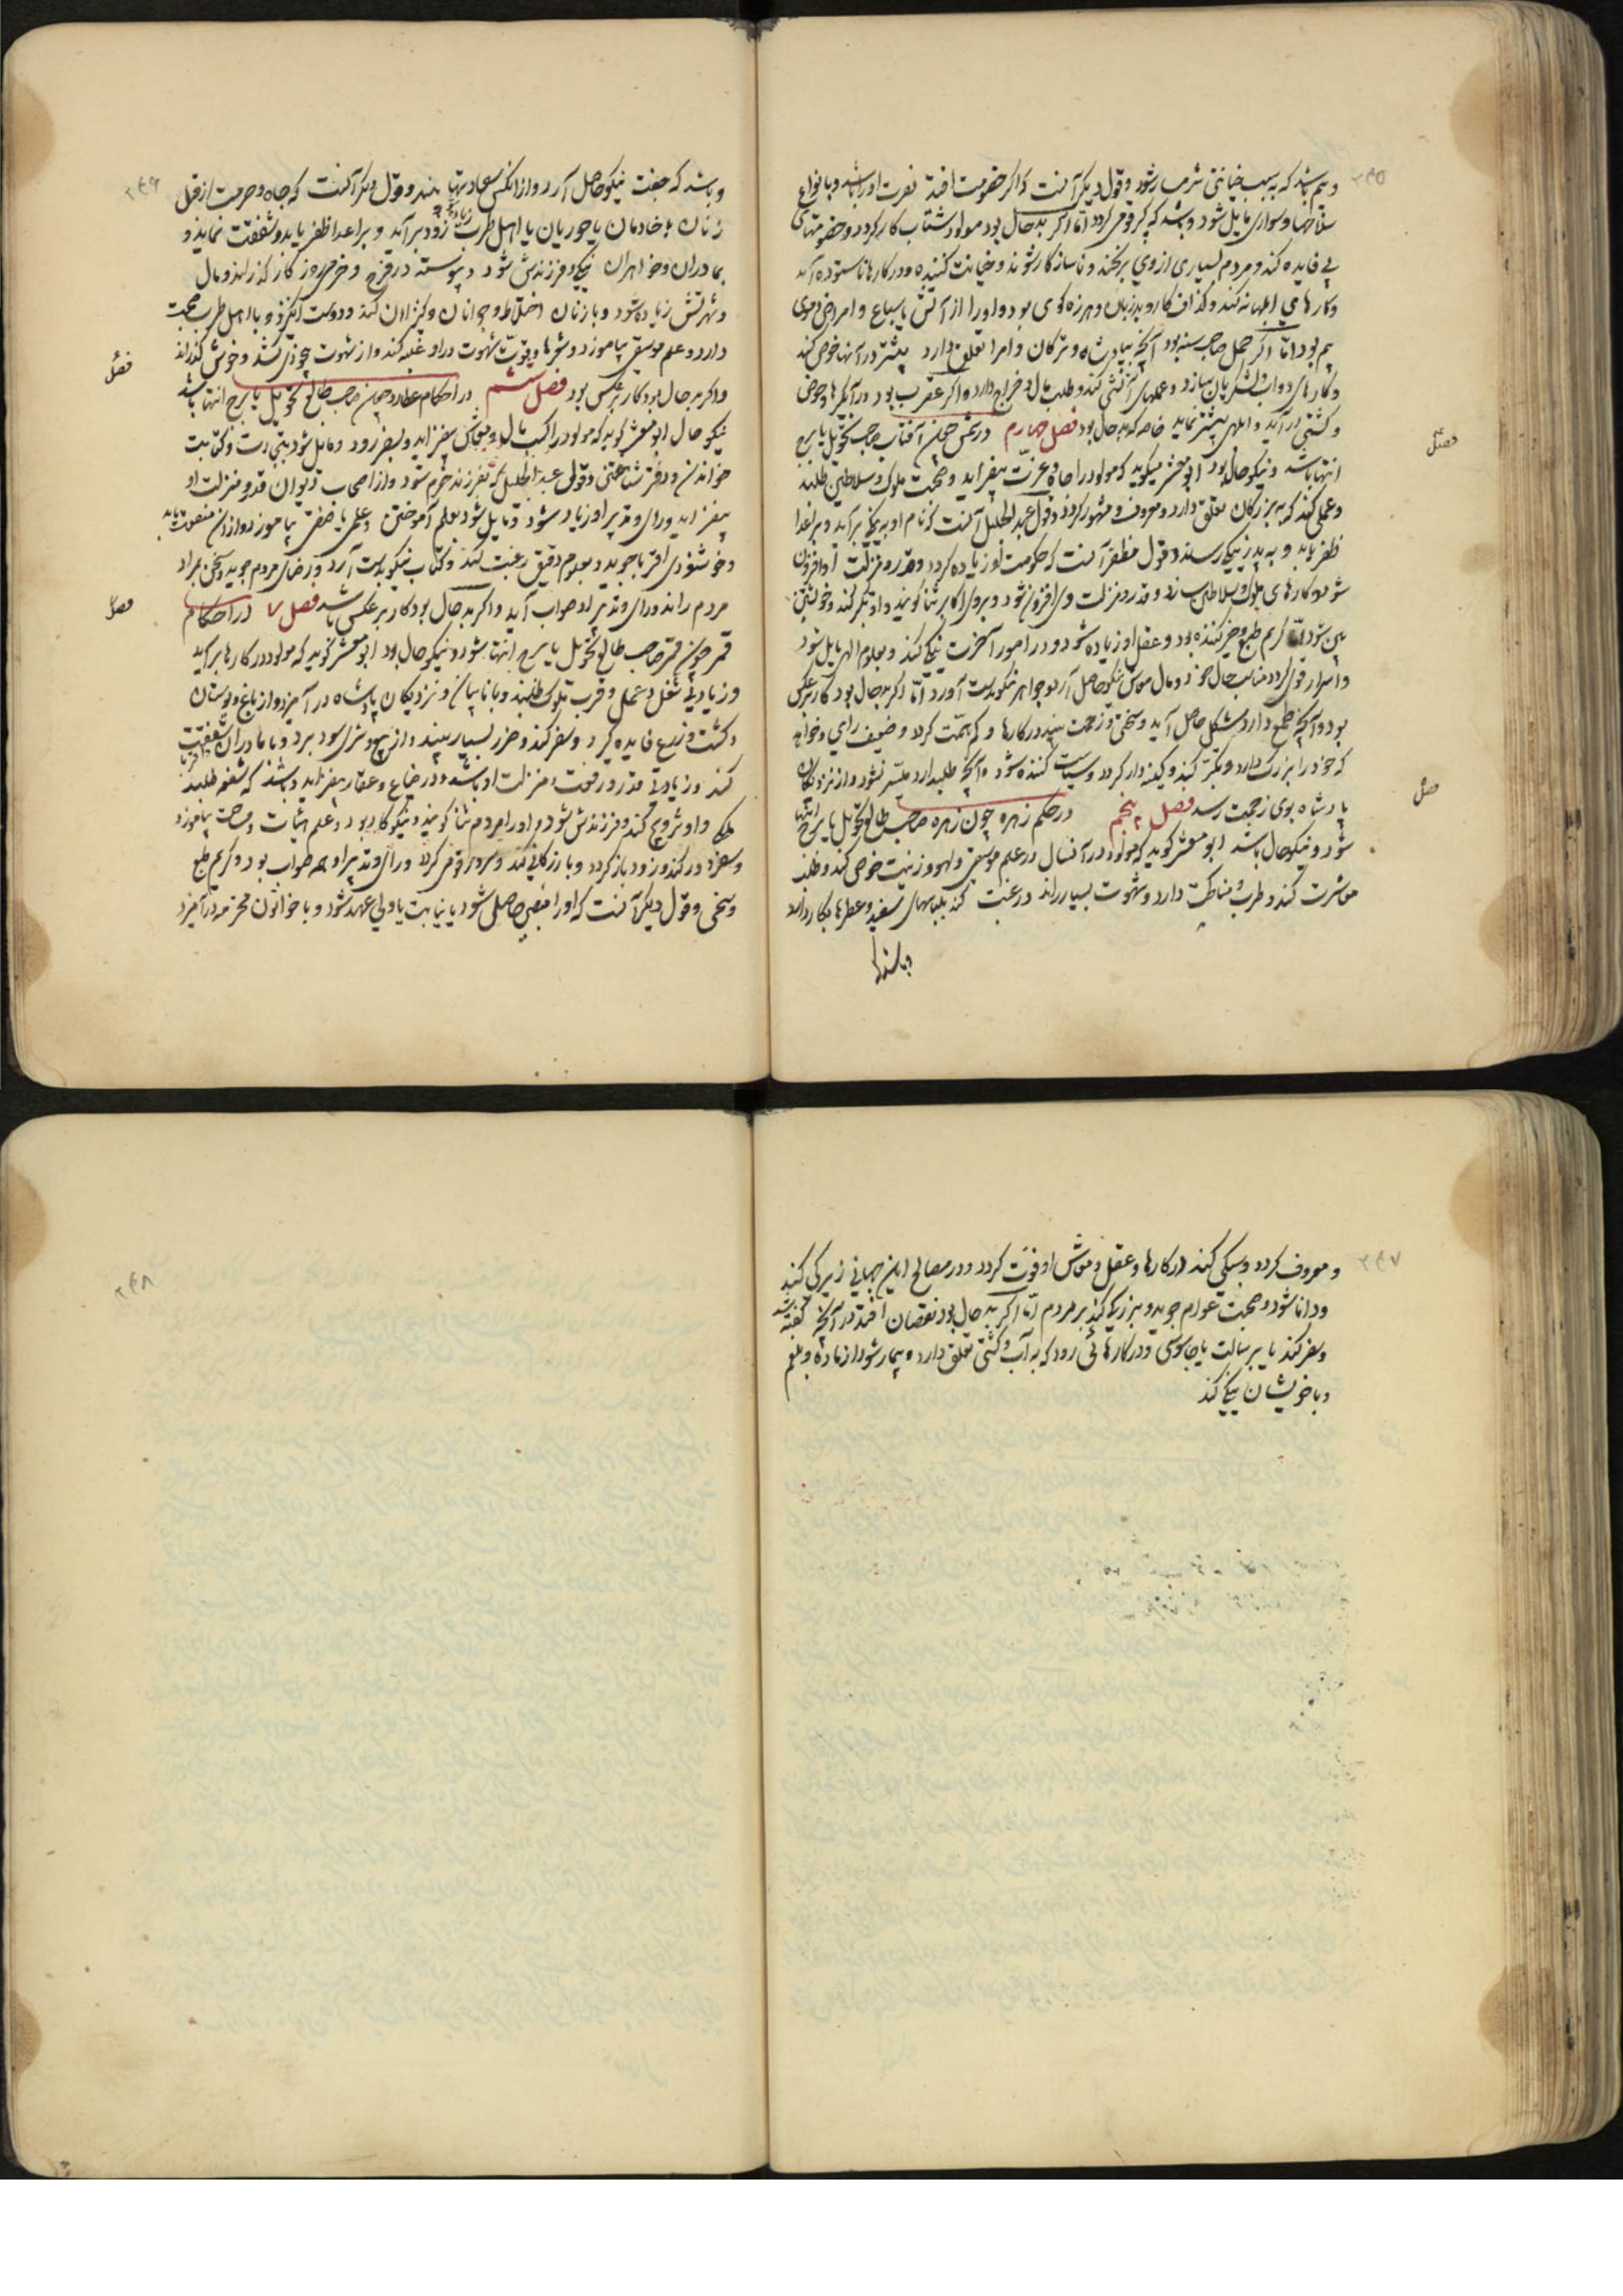 ۲۶۵
و بیم باشد که به سبب خیانتی شرمسار شود و قول دیگر آنست که اگر خصومت افتد نصرت او را باشد و بانواع
سلاحها و سواری مایل شود و باشد که بکر و فر گردد اما اگر بد حال بود مولود شتاب کار گردد و خصومتهای
بی فایده کند و مردم بسیاری از وی برنجند و ناسازگار شوند و خیانت کننده و در کارها ناستوده آید
و کارهای ابلهانه کند و گزاف کار و بدزبان و هرزه گوی بود و او را از آتش یا سباع و امراض دموی
بیم بود اما اگر حمل صاحب سنه بود آنچه بپادشاه و ترکان و امرا تعلق دارد بیشتر در آنها خوض کند
و کارهای دواب و لشکریان بسازد و عملهای آتشی کند و طلب مال و خراج دارد و اگر عقرب بود در آبگیرها و حوض
و کشتی در آید و ابلهی بیشتر نماید خاصه که بد حال بود فصل چهارم در شمس چون آفتاب صاحب تحویل یا برج
انتها باشد و نیکو حال بود ابو معشر میگوید که مولود را جاه و عزت بیفزاید و صحبت ملوک و سلاطین طلبد
و عملی کند که به بزرگان تعلق دارد و معروف و مشهور گردد و قول عبدالجلیل آنست که نام او به نیکی برآید و بر اعدا
ظفر یابد و به پدر نیکی رساند و قول مظفر آنست که حکومت او زیاده گردد و قدر و منزلت او افزون
شود و کارهای ملوک و سلاطین سازد و قدر و منزلت وی افزون شود و بروی اکابر ثنا گویند و او تکبر کند و خویشتن
بین شود کریم طبع و خیر کننده بود و عقل او زیاده شود و در امور آخرت نیکی کند و بعلوم الهی مایل شود
و اسرار قوی گردد مناسب حال خود و مال و معاش نیکو حاصل آرد و جواهر نیکو بدست آورد اما اگر بد حال بود کار برعکس
بود و آنچه طمع دارد مشکل حاصل آید و سختی و زحمت بیند در کارها و کم همت گردد و ضعیف رای و خواهد
که خود را بزرگ دارد و تکبر کند و کینه دار گردد و سیاست کننده شود و آنچه طلبد او را میسر نشود و از نزدیکان
پادشاه بوی زحمت رسد فصل پنجم در حکم زهره چون زهره صاحب طالع تحویل یا برج انتها
شود و نیکو حال باشد ابو معشر گوید که مولود در آنسال در علم موسیقی و لهو و زینت خوض کند و طلب
معاشرت کند و طرب و مناکحت دارد و شهوت بسیار راند و رغبت کند بلباسهای سفید و عطرها بکار دارد
و باشد که
فصل
فصل
۲۶۶
و باشد که جفت نیکو حاصل آرد و از آنکس سعادتها بیند و قول دیگر آنست که جاه و حرمت از قبل
زنان یا خادمان یا حوریان یا اهل طرب زود برآید و بر اعدا ظفر یابد و شفقت نماید و
بمادران و خواهران نیکی و فرزندش شود و پیوسته در فرح و خرمی روزگار گذراند و مال
و شهرتش زیاده شود و با زنان اختلاط و جوانان و کنیزان کند و دوست انگیزد و با اهل طرب صحبت
دارد و علم موسیقی بیاموزد و شعرها و قوت شهوت در او غلبه کند و از شهوت چوشی کشد و خوش گذراند
و اگر بد حال بود کار برعکس بود فصل ششم در احکام عطارد چون صاحب طالع تحویل یا برج انتها باشد
نیکو حال ابو معشر گوید که مولود را کسب مال و معاش بیفزاید و بسفر رود و مایل شود بتجارت و کتابت
خواندن و دفتر شناختن و قول عبدالجلیل که بفرزند خرم شود و از اصحاب دیوان قدر و منزلت او
بیفزاید و رای و تدبیر او زیاد شود و مایل شود بعلم آموختن و علمی یا صنعتی بیاموزد و از آن منفعت یابد
و خوشنودی اقربا جوید و بعلوم دقیق رغبت کند و کتاب نیکو بدست آرد و رضای مردم جوید و سخن بمراد
مردم راند و رای و تدبیر او صواب آید و اگر بد حال بود کار برعکس باشد فصل ۷ در احکام
قمر چون قمر صاحب طالع تحویل یا برج انتها شود و نیکو حال بود ابو معشر گوید که مولود در کارها برآید
و زیادتی شغل و عمل و قرب ملوک طلبد و با نایبان و نزدیکان پادشاه در آمیزد و از باغ و بوستان
و کشت و زرع فایده گیرد و سفر کند و خرد بسیار بیند و از بیع و شری سود برد و با مادران شفقت
کند و زیادتی قدر و رفعت و منزلت او باشد و در ضیاع و عقار بیفزاید و باشد که شغلهای طلبد
ملکی و او تزویج کند و فرزندش شود و او را مردم ثنا گویند و نیکو کار بود و علم اثبات و مساحت بیاموزد
و سفر دور کند و زود باز گردد و بازرگانی کند و سرور قومی گردد و رای و تدبیر او همه صواب بود و کریم طبع
و سخی و قول دیگر آنست که او را منصبی حاصل شود یا نیابت یا ولی عهد شود و با خواتون محترمه در آمیزد
فصل
فصل
فصل
۲۶۷
و معروف گردد و سبکی کند در کارها و عقل و معاش او قوت گردد و در مصالح این جهانی زیرکی کند
و دانا شود و صحبت عوام جوید و بزرگی کند بر مردم اما اگر بد حال بود نقصان افتد در آنچه گفته شد
و سفر کند یا برسالت یا جاسوسی و در کارهائی رود که به آب و کشتی تعلق دارد و بیمار شود از ماده بلغم
و با خویشان نیکی کند
۲۶۸